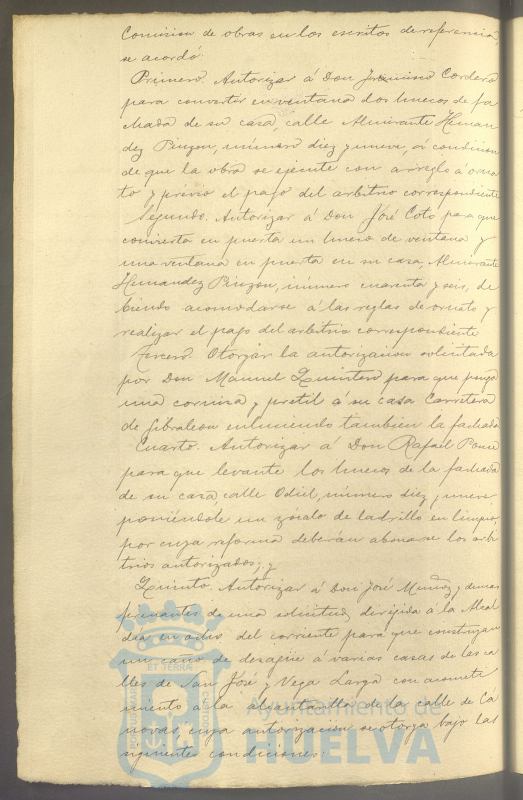 Comision de obras en los escritos de referencia,
se acordó:
Primero. Autorizar á Don Francisco Cordero
para convertir en ventana dos huecos de fa
chada de su casa, calle Almirante Hernan
dez Pinzon, número diez y nueve, á condicion
de que la obra se ejecute con arreglo á orna
to y prévio el pago del arbitrio correspondiente
Segundo. Autorizar á Don José Coto para que
convierta en puerta un hueco de ventana y
una ventana en puerta en su casa, Almirante
Hernandez Pinzon, número cuarenta y seis, de
biendo acomodarse á las reglas de ornato y
realizar el pago del arbitrio correspondiente
Tercero. Otorgar la autorizacion solicitada
por Don Manuel Quintero para que ponga
una cornisa y pretil á su casa Carretera
de Gibraleon enluciendo tambien la fachada
Cuarto. Autorizar á Don Rafael Ponce
para que levante los huecos de la fachada
de su casa, calle Odiel, número diez y nueve
poniéndole un zócalo de ladrillo en limpio,
por cuya reforma deberán abonarse los arbi
trios autorizados; y
Quinto. Autorizar á Don José Muñoz y demas
firmantes de una solicitud dirigida á la Alcal
día en ocho del corriente para que construyan
un caño de desagüe á varias casas de las ca
lles de San José y Vega Larga con acometi
miento á la alcantarilla de la calle de Cá
novas, cuya autorizacion se otorga bajo las
siguientes condiciones:
Ayuntamiento de
HUELVA
PORTUS MARIS
ET TERRÆ
CUSTODIA